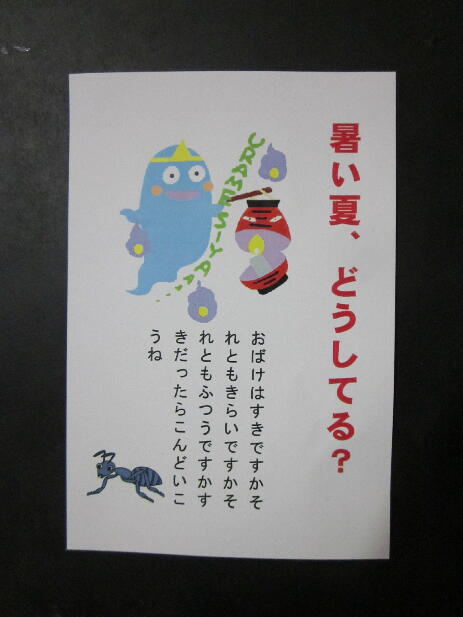 暑い夏、どうしてる?
URAMESIYAAA....
おばけはすきですかそ
れともきらいですかそ
れともふつうですかす
きだったらこんどいこ
うね